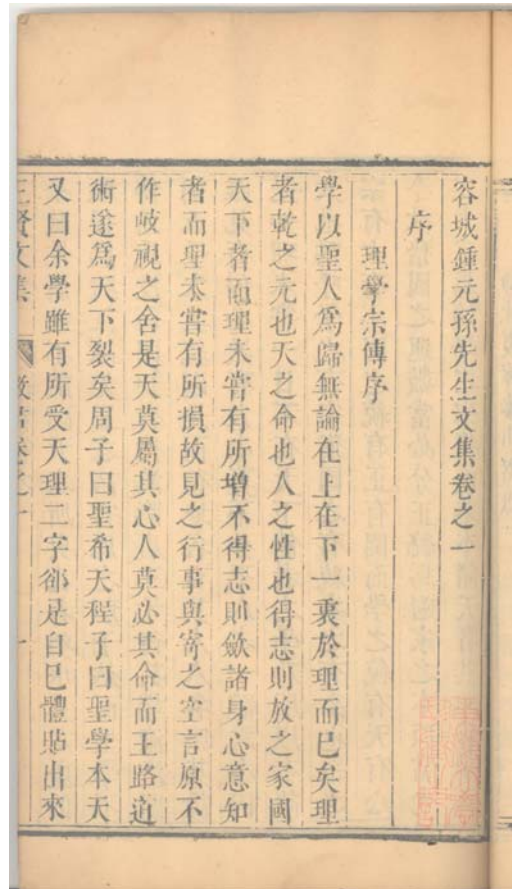 容城鍾元孫先生文集卷之一
序
理學宗傳序
學以聖人爲歸無論在上在下一衷於理而已矣理
者乾之元也天之命也人之性也得志則放之家國
天下者而理未嘗有所增不得志則斂諸身心意知
者而理未嘗有所損故見之行事與寄之空言原不
作岐視之舍是天莫屬其心人莫必其命而王路道
術遂爲天下裂矣周子曰聖希天程子曰聖學本天
又曰余學雖有所受天理二字卻是自己體貼出來
三賢文集
徵君卷之一
一